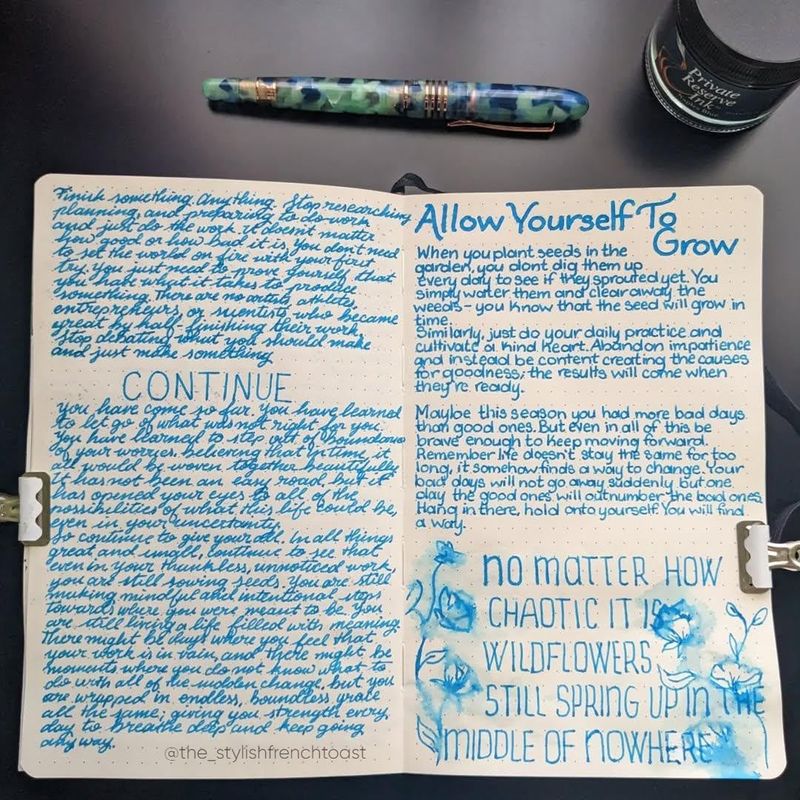 Finish something. Anything. Stop researching
planning, and preparing to do work
and just do the work. It doesn't matter
how good or how bad it is, you don't need
to set the world on fire with your first
try. You just need to prove yourself that
you have what it takes to produce
something. There are no artists, athletes,
entrepreneurs, or scientists who became
great by half-finishing their work.
Stop debating what you should make
and just make something
CONTINUE
You have come so far. You have learned
to let go of what was not right for you.
You have learned to step out of boundaries
of your worries. believing that in time, it
all would be woven together beautifully
It has not been an easy road, but it
has opened your eyes to all of the
possibilities of what this life could be,
even in your uncertainty.
So continue to give your all. In all things
great and small, continue to see that
even in your thankless, unnoticed work,
you are still sowing seeds. You are still
making mindful and intentional steps
towards where you were meant to be. You
are still living a life filled with meaning.
There might be days where you feel that
your work is in vain, and there might be
moments where you do not know what to
do with all of the sudden change, but you
are wrapped in endless, boundless grace
all the same; giving you strength every
day to breathe deep and keep going
any way.
@the_stylishfrenchtoast
Allow Yourself To
Grow
When you plant seeds in the
garden, you dont dig them up
every day to see if they sprouted yet. You
simply water them and clear away the
weeds - you know that the seed will grow in
time.
Similarly, just do your daily practice and
cultivate a kind heart. Abandon impatience
and instead be content creating the causes
for goodness; the results will come when
they're ready.
Maybe this season you had more bad days
than good ones. But even in all of this be
brave enough to keep moving forward.
Remember life doesn't stay the same for too
long, it somehow finds a way to change. Your
bad days will not go away suddenly but one
day the good ones will outnumber the bad ones.
Hang in there, hold onto yourself. You will find
a way.
NO MATTER HOW
CHAOTIC IT IS
WILDFLOWERS
STILL SPRING UP IN THE
MIDDLE OF NOWHERE
Private
Reserve
Ink